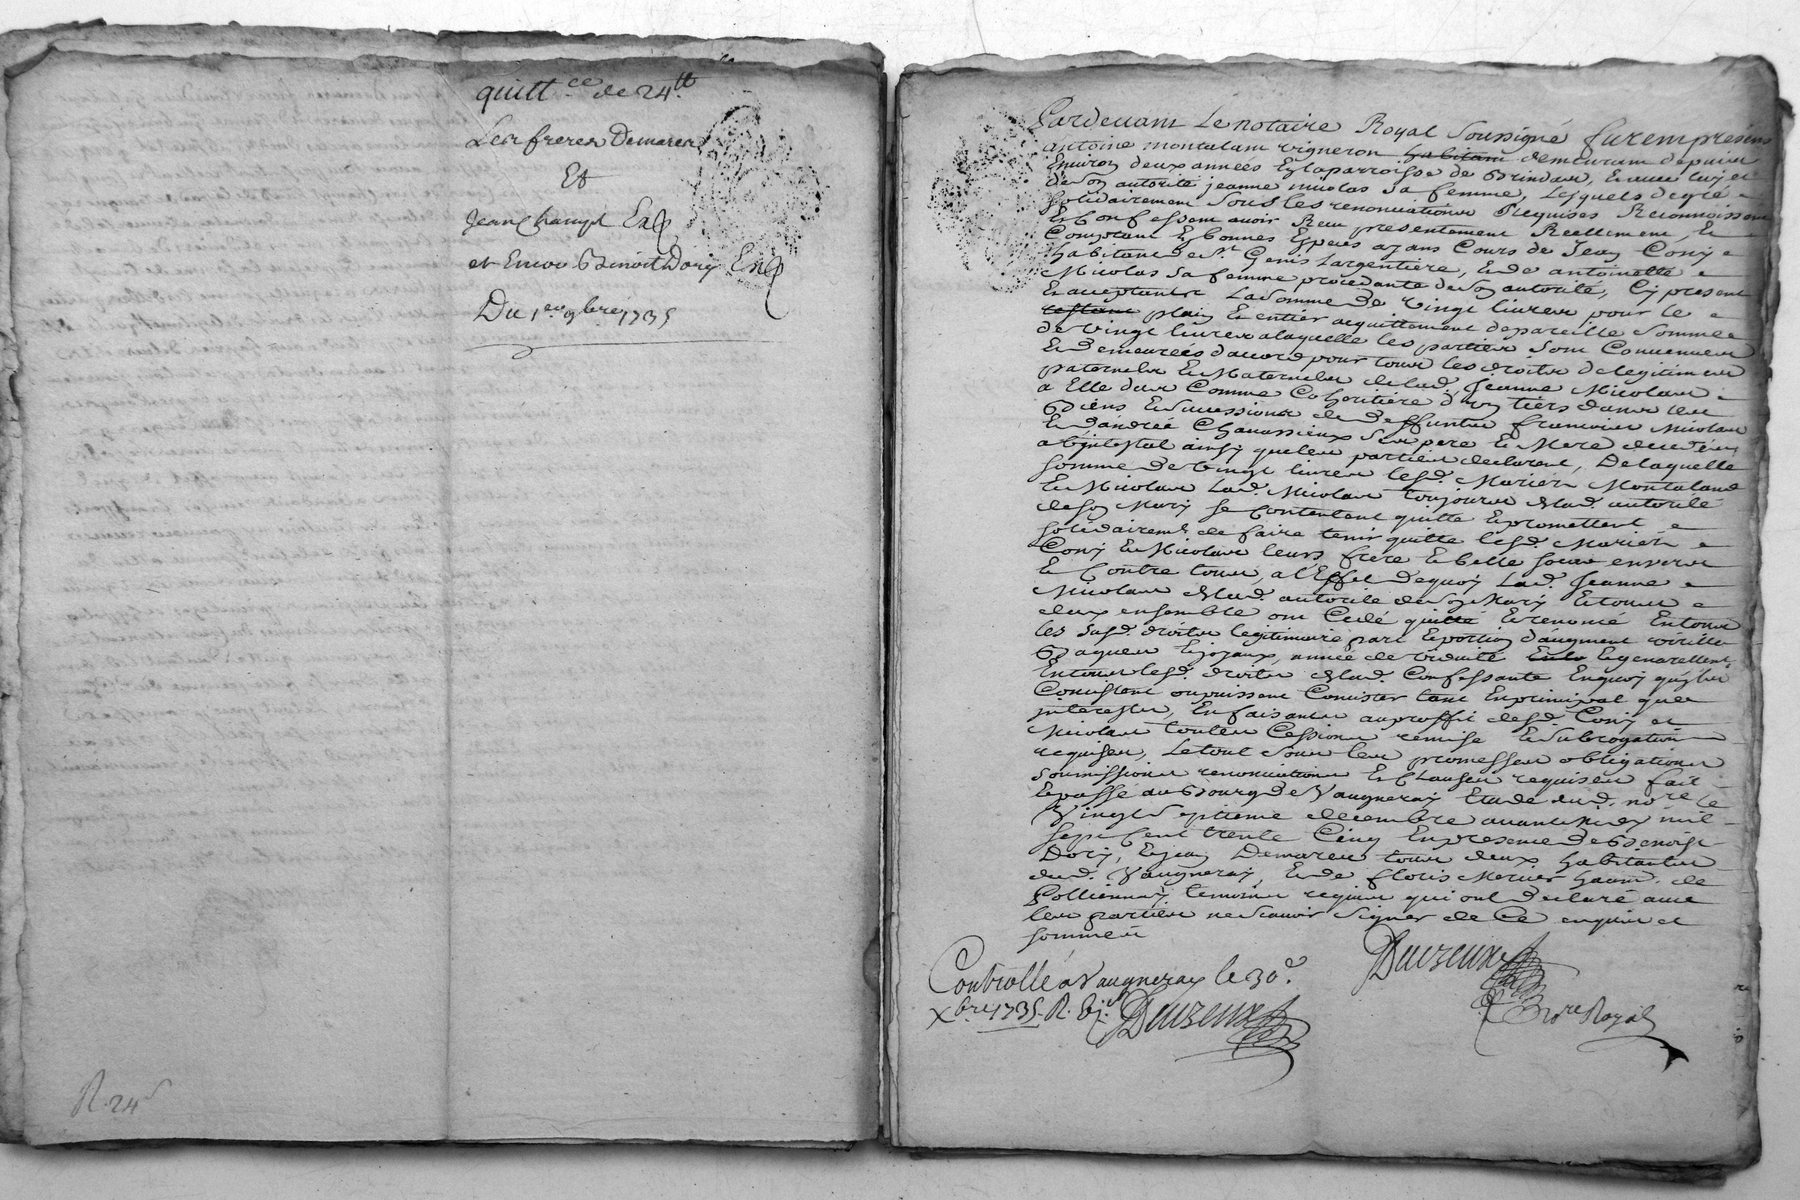 quitt.ce de 24.tt
Les freres Demares
Et
Jean Champt Exp
et Encor Benoit Dory Exp
Du 1.er 9bre 1735
R. 24 s
Pardevant Le notaire Royal Soussigné furent présens
antoine montalam vigneron habitant demeurant depuis
Environ deux années En la parroisse de Brindas, Et avec luy et
de Son autorité jeanne micolas Sa femme, Lesquels de gré
Solidairement Sous les renonciations Requises Reconnoissent
Et Confessent avoir Receu présentement Reellement, Et
Comptant En bonnes Espèces ayans Cours de Jean Cony
habitant de St Genis Largentiere, Et de antoinette
Micolas Sa femme procedante de Son autorité, Cy present
Et acceptants La Somme de vingt livres pour le
restant plain Et entier acquittement de pareille Somme
de vingt livres a laquelle les parties Sont Convenues
Et demeurées d'accord pour tous les droits de legitimes
paternelles Et Maternelles de lad. Jeanne Micolas
a Elle dus Comme Coheritiere d'un tiers dans les
Biens Et Successions de Deffunts francois Micolas
Et d'andrée Chaussieux Ses père Et Mere decedés
abjntestat ainsy que les parties declarent, De laquelle
Somme de vingt livres lesd. Mariés Montaland
Et Micolas Lad. Micolas toujours de lad. autorité
de Son Mary Se Contentent quitte Et promettent
Solidairemt de faire tenir quitte lesd. Mariés
Cony Et Micolas leurs frere Et belle Soeur envers
Et Contre tous, a l'Effet de quoy Lad. Jeanne
Micolas de lad. autorité de Son Mary Et tous
deux ensemble ont Cedé quitté Et renoncé En tous
les Susd. droits legitimaire part Et portion d'augment virille
Bagues Et joyaux, année de viduité Enla Et generallemt
En tous lesd. droits de lad. Confessante En quoy qu'ils
Consistent ou puissent Consister tant En principal que
jnterests, En faisant au proffit desd. Cony et
Micolas toutes Cessions remise Et Subrogation
requises, Le tout Sous les promesses obligations
Soumissions renonciations Et Clauses requises fait
Et passé au Bourg de Vaugneray Etude dud. nore le
Vingt Septieme decembre avant Midy mil
Sept Cent trente Cinq En presence de Benoist
Dory, Et jean Demares tous deux habitants
dud. Vaugneray, Et de floris Mercier habit. de
Pollionnay temoins requis qui ont declaré avec
les parties ne Scavoir Signer de Ce enquis et
Sommés
Controllé a Vaugneray le 30.e
Xbre 1735. R.